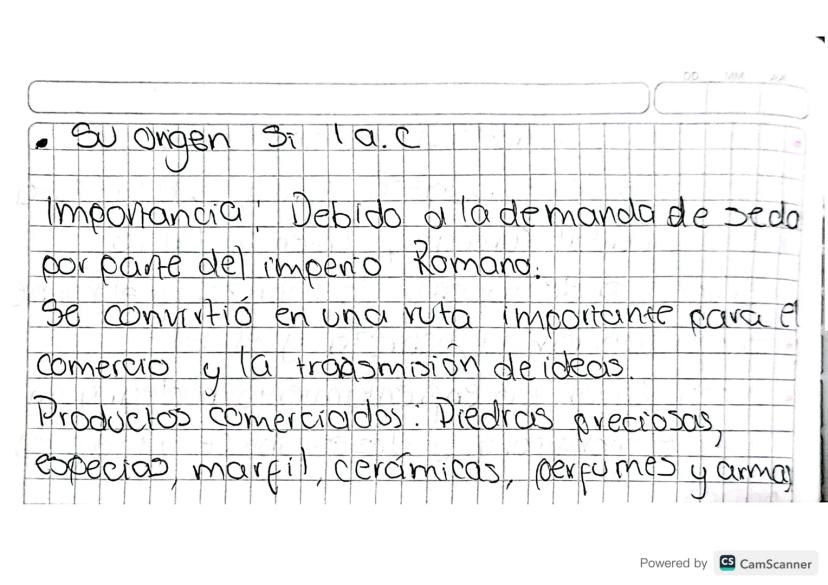 DD MM AA
• Su origen Si 1 a.C
Importancia: Debido a la demanda de seda
por parte del imperio Romano.
Se convirtió en una ruta importante para el
comercio y la trasmisión de ideas.
Productos comerciados: Piedras preciosas,
especias, marfil, cerámicas, perfumes y armas
Powered by CS CamScanner